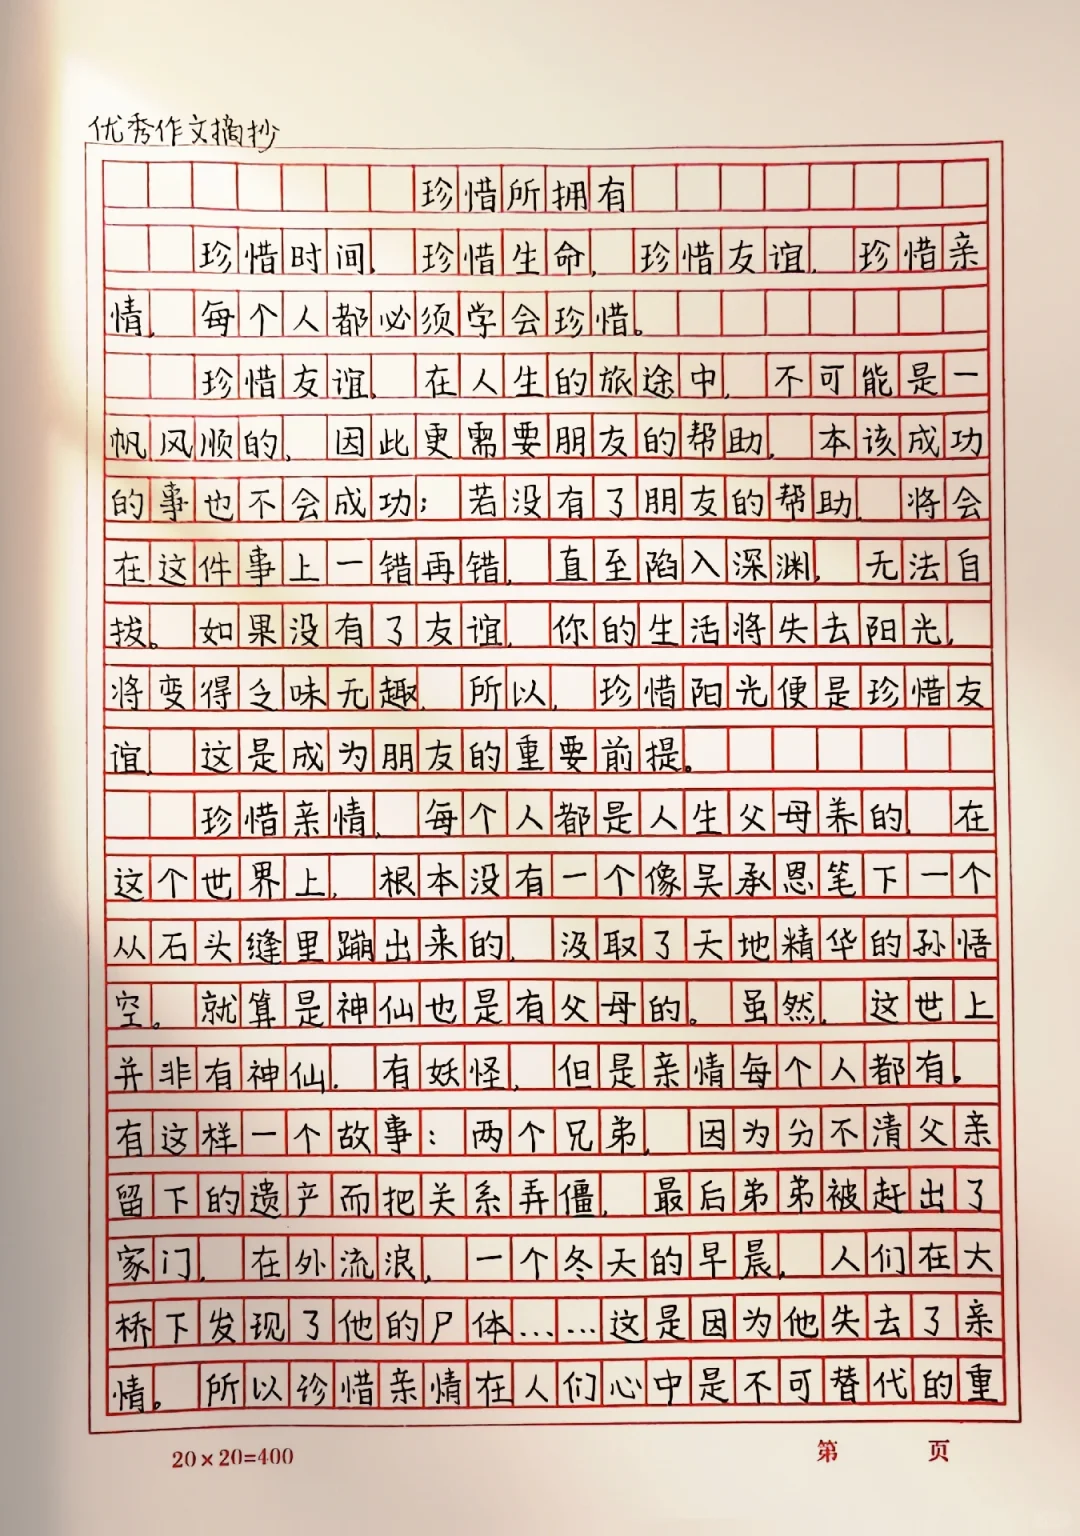 优秀作文摘抄
珍惜所拥有
珍惜时间,珍惜生命,珍惜友谊,珍惜亲
情,每个人都必须学会珍惜。
珍惜友谊,在人生的旅途中,不可能是一
帆风顺的,因此更需要朋友的帮助,本该成功
的事也不会成功;若没有了朋友的帮助,将会
在这件事上一错再错,直至陷入深渊,无法自
拔。如果没有了友谊,你的生活将失去阳光,
将变得乏味无趣,所以,珍惜阳光便是珍惜友
谊,这是成为朋友的重要前提。
珍惜亲情,每个人都是人生父母养的,在
这个世界上,根本没有一个像吴承恩笔下一个
从石头缝里蹦出来的,汲取了天地精华的孙悟
空。就算是神仙也是有父母的。虽然,这世上
并非有神仙,有妖怪,但是亲情每个人都有。
有这样一个故事:两个兄弟,因为分不清父亲
留下的遗产而把关系弄僵,最后弟弟被赶出了
家门,在外流浪,一个冬天的早晨,人们在大
桥下发现了他的尸体……这是因为他失去了亲
情。所以珍惜亲情在人们心中是不可替代的重
20×20=400
第 页